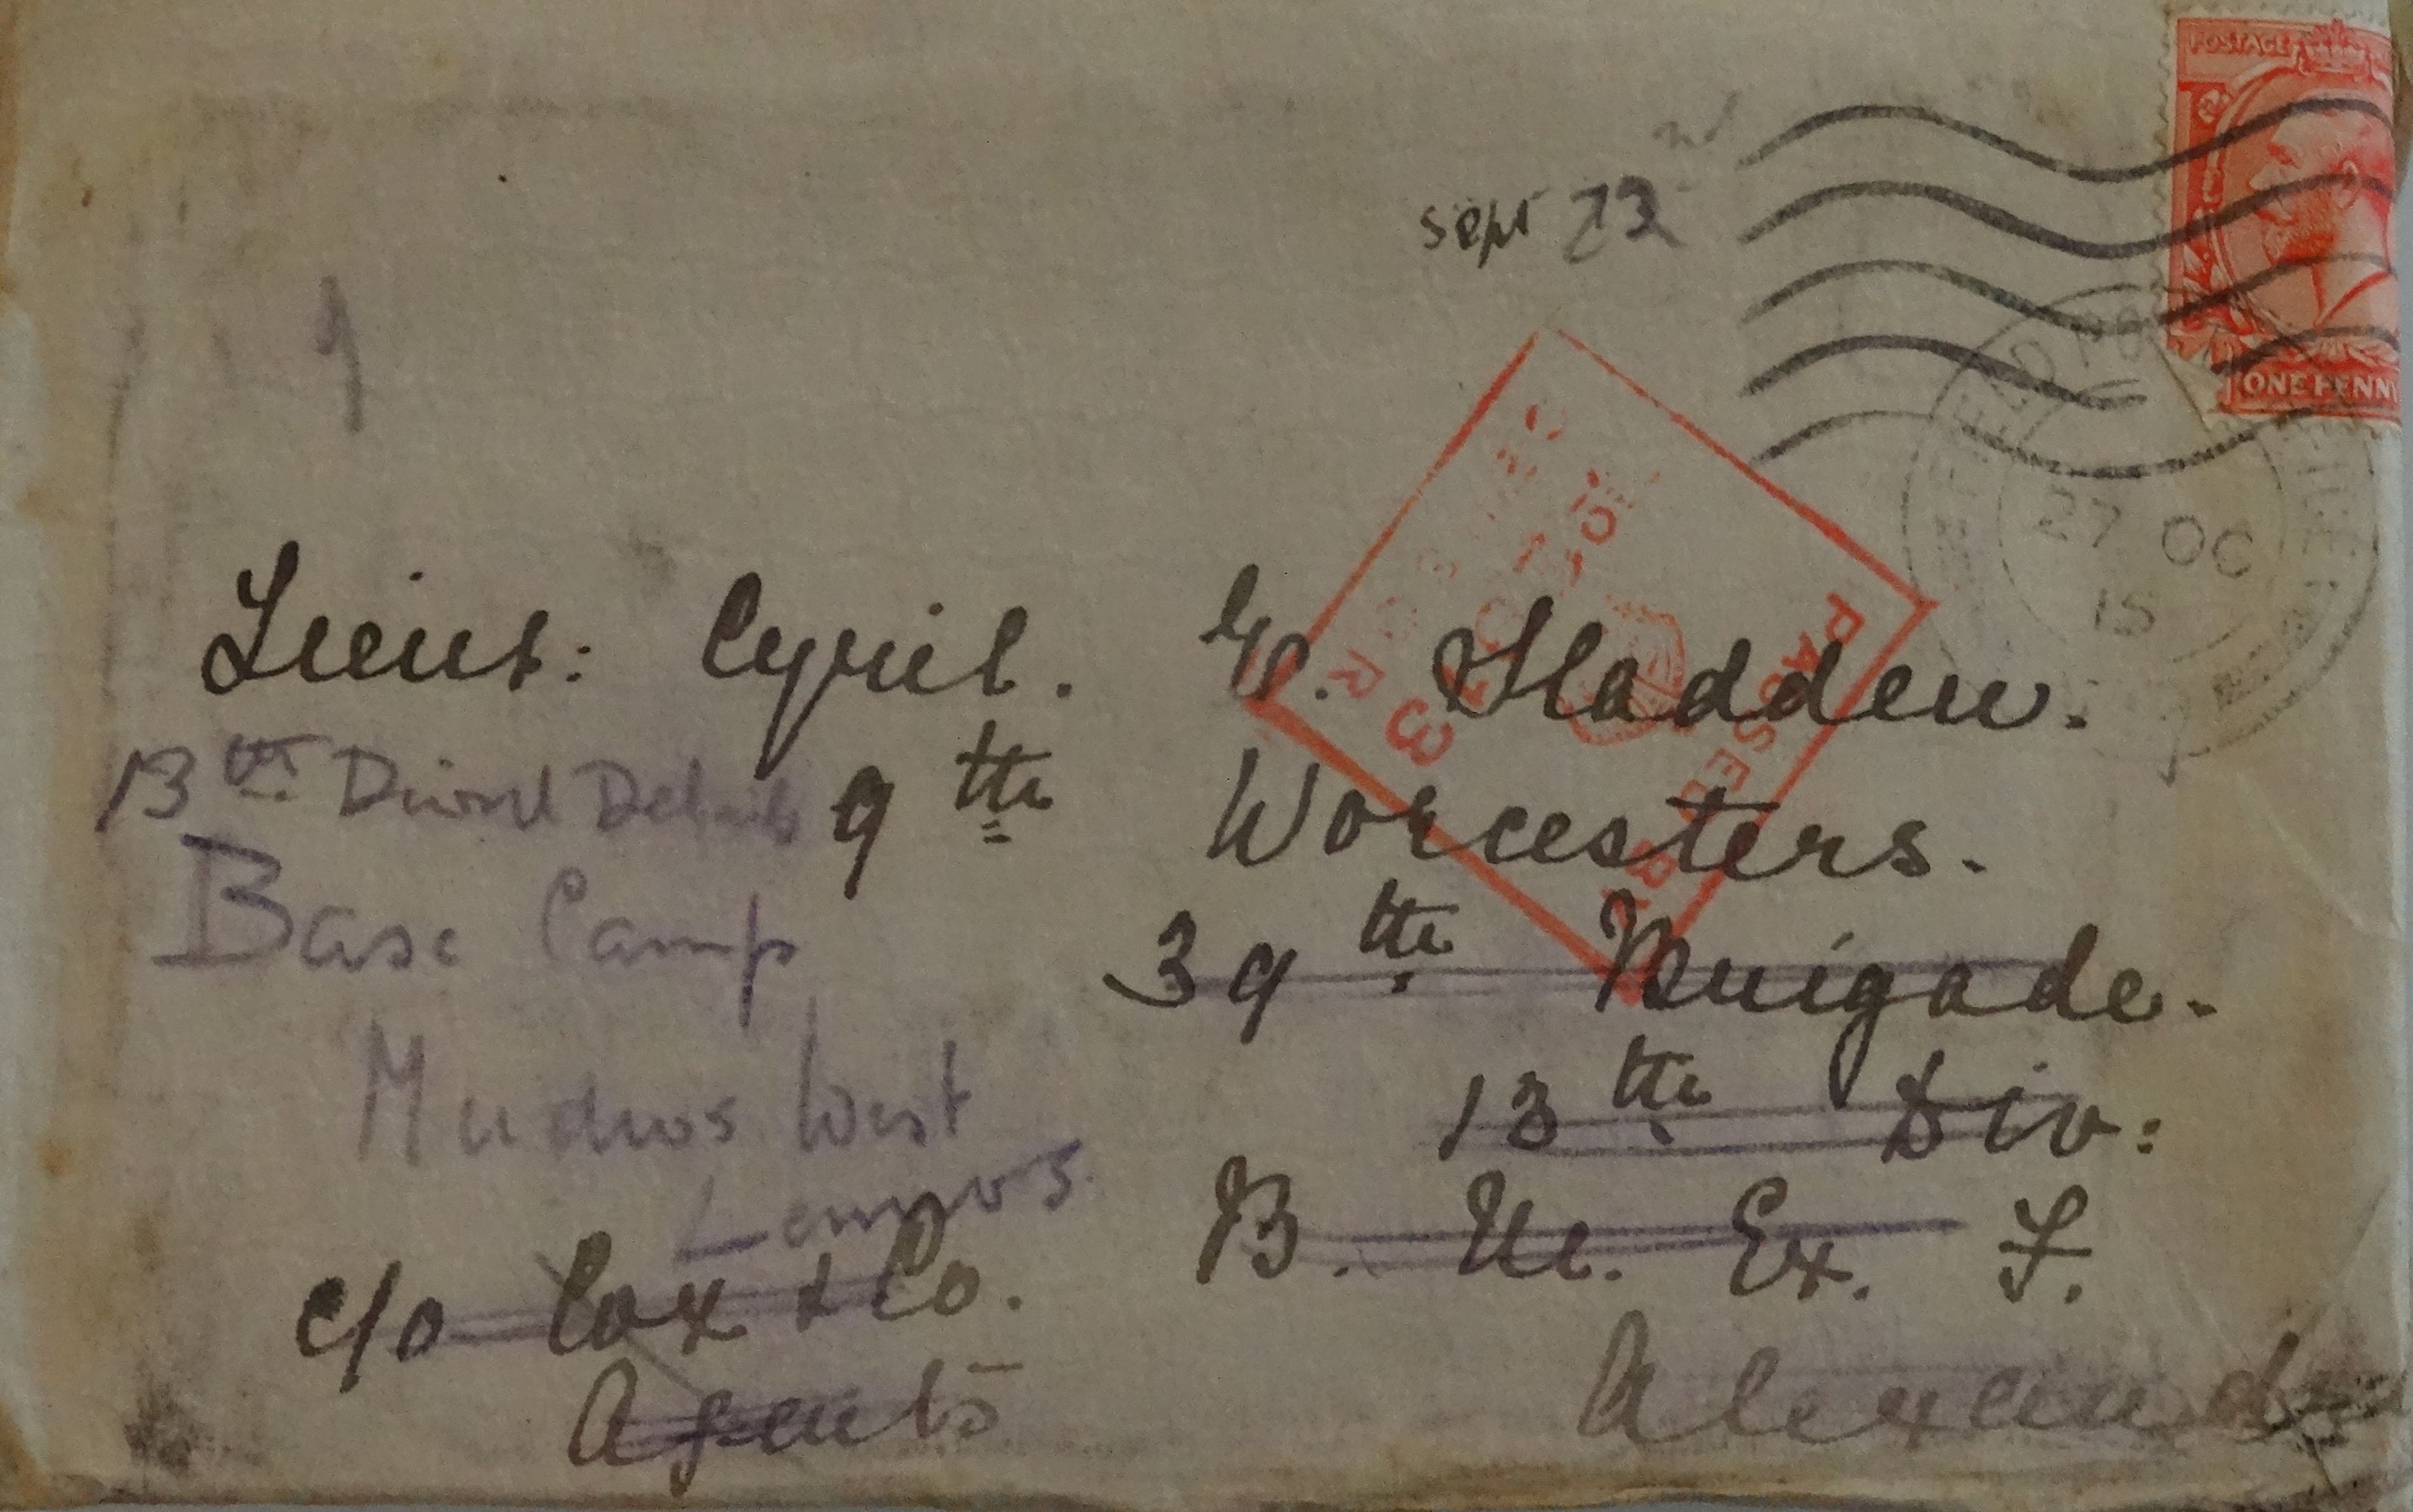 POSTAGE
ONE PENNY
Sept 22
27 OC
15
PASSED BY
CENSOR
3
Lieut: Cyril. E. Sladden.
9th Worcesters.
39th Brigade.
13th Div:
B. M. Ex. F.
Alexandria
13th Divnl Details
Base Camp
Mudros West
Lemnos.
c/o Cox & Co.
Agents